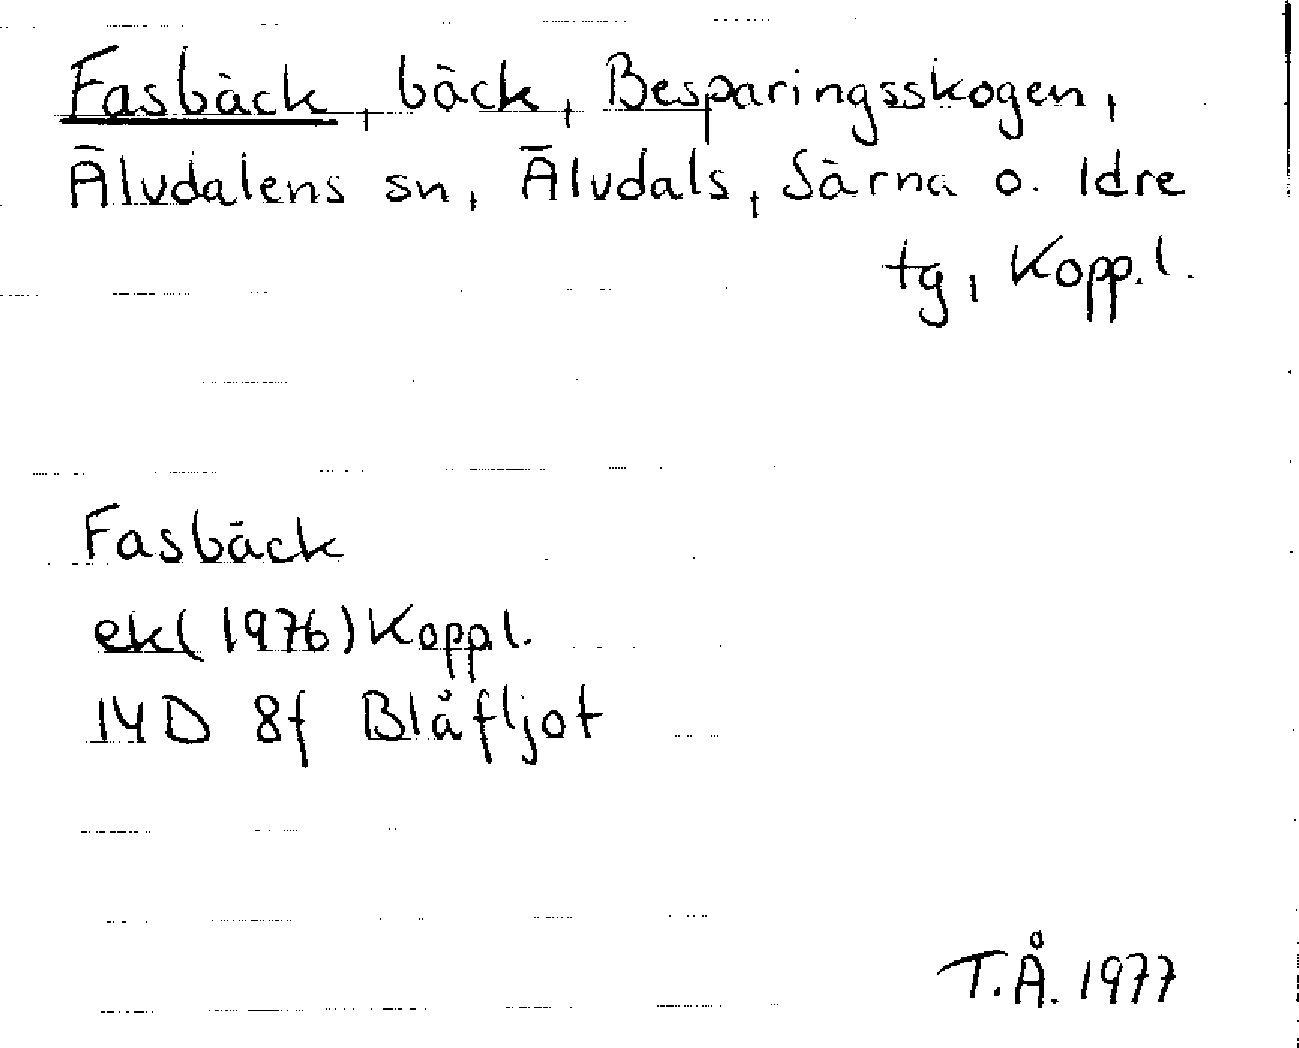 Fasbäck, bäck, Besparingsskogen,
Älvdalens sn, Älvdals, Särna o. Idre
tg, Kopp.l.
Fasbäck
ek (1976) Kopp l.
14D 8f Blåfljot
T.Å. 1977